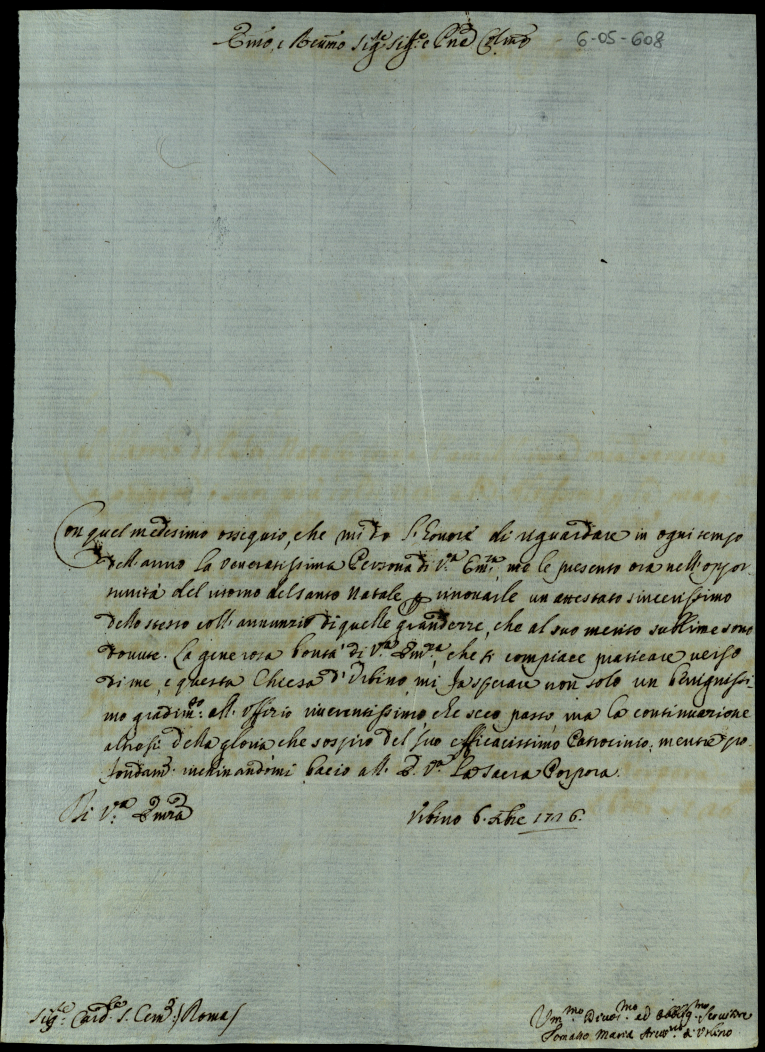 Emo, e Rmo Sigre Sigre e Pne Colmo 6-05-608
Con quel medesimo ossequio, che mi do l'honore di riguardare in ogni tempo
dell'anno la veneratissima Persona di V.ra Em.za me le presento ora nell'oppor-
tunità del ritorno del Santo Natale p rinovarle un attestato sincerissimo
dello stesso coll'annunzio di quelle grandezze, che al suo merito sublime sono
dovute. La generosa bontà di V.ra Em.za, che si compiace praticare verso
di me, e questa Chiesa d'Urbino, mi fa sperare non solo un benignissi-
mo gradim.to all'offizio riverentissimo, che seco passo, ma la continuazione
altresì della gloria che sospiro del suo efficacissimo Patrocinio; mentre pro-
fondam.te inchinandomi bacio all'E. V.ra la Sacra Porpora.
Di V.ra Emza Urbino 6. Xbre 1716.
Sigre Card.le S. Clem.te / Roma /
Um.mo Devot.mo ed Obblig.mo Servitore
Tomaso Maria Arciv.vo d'Urbino